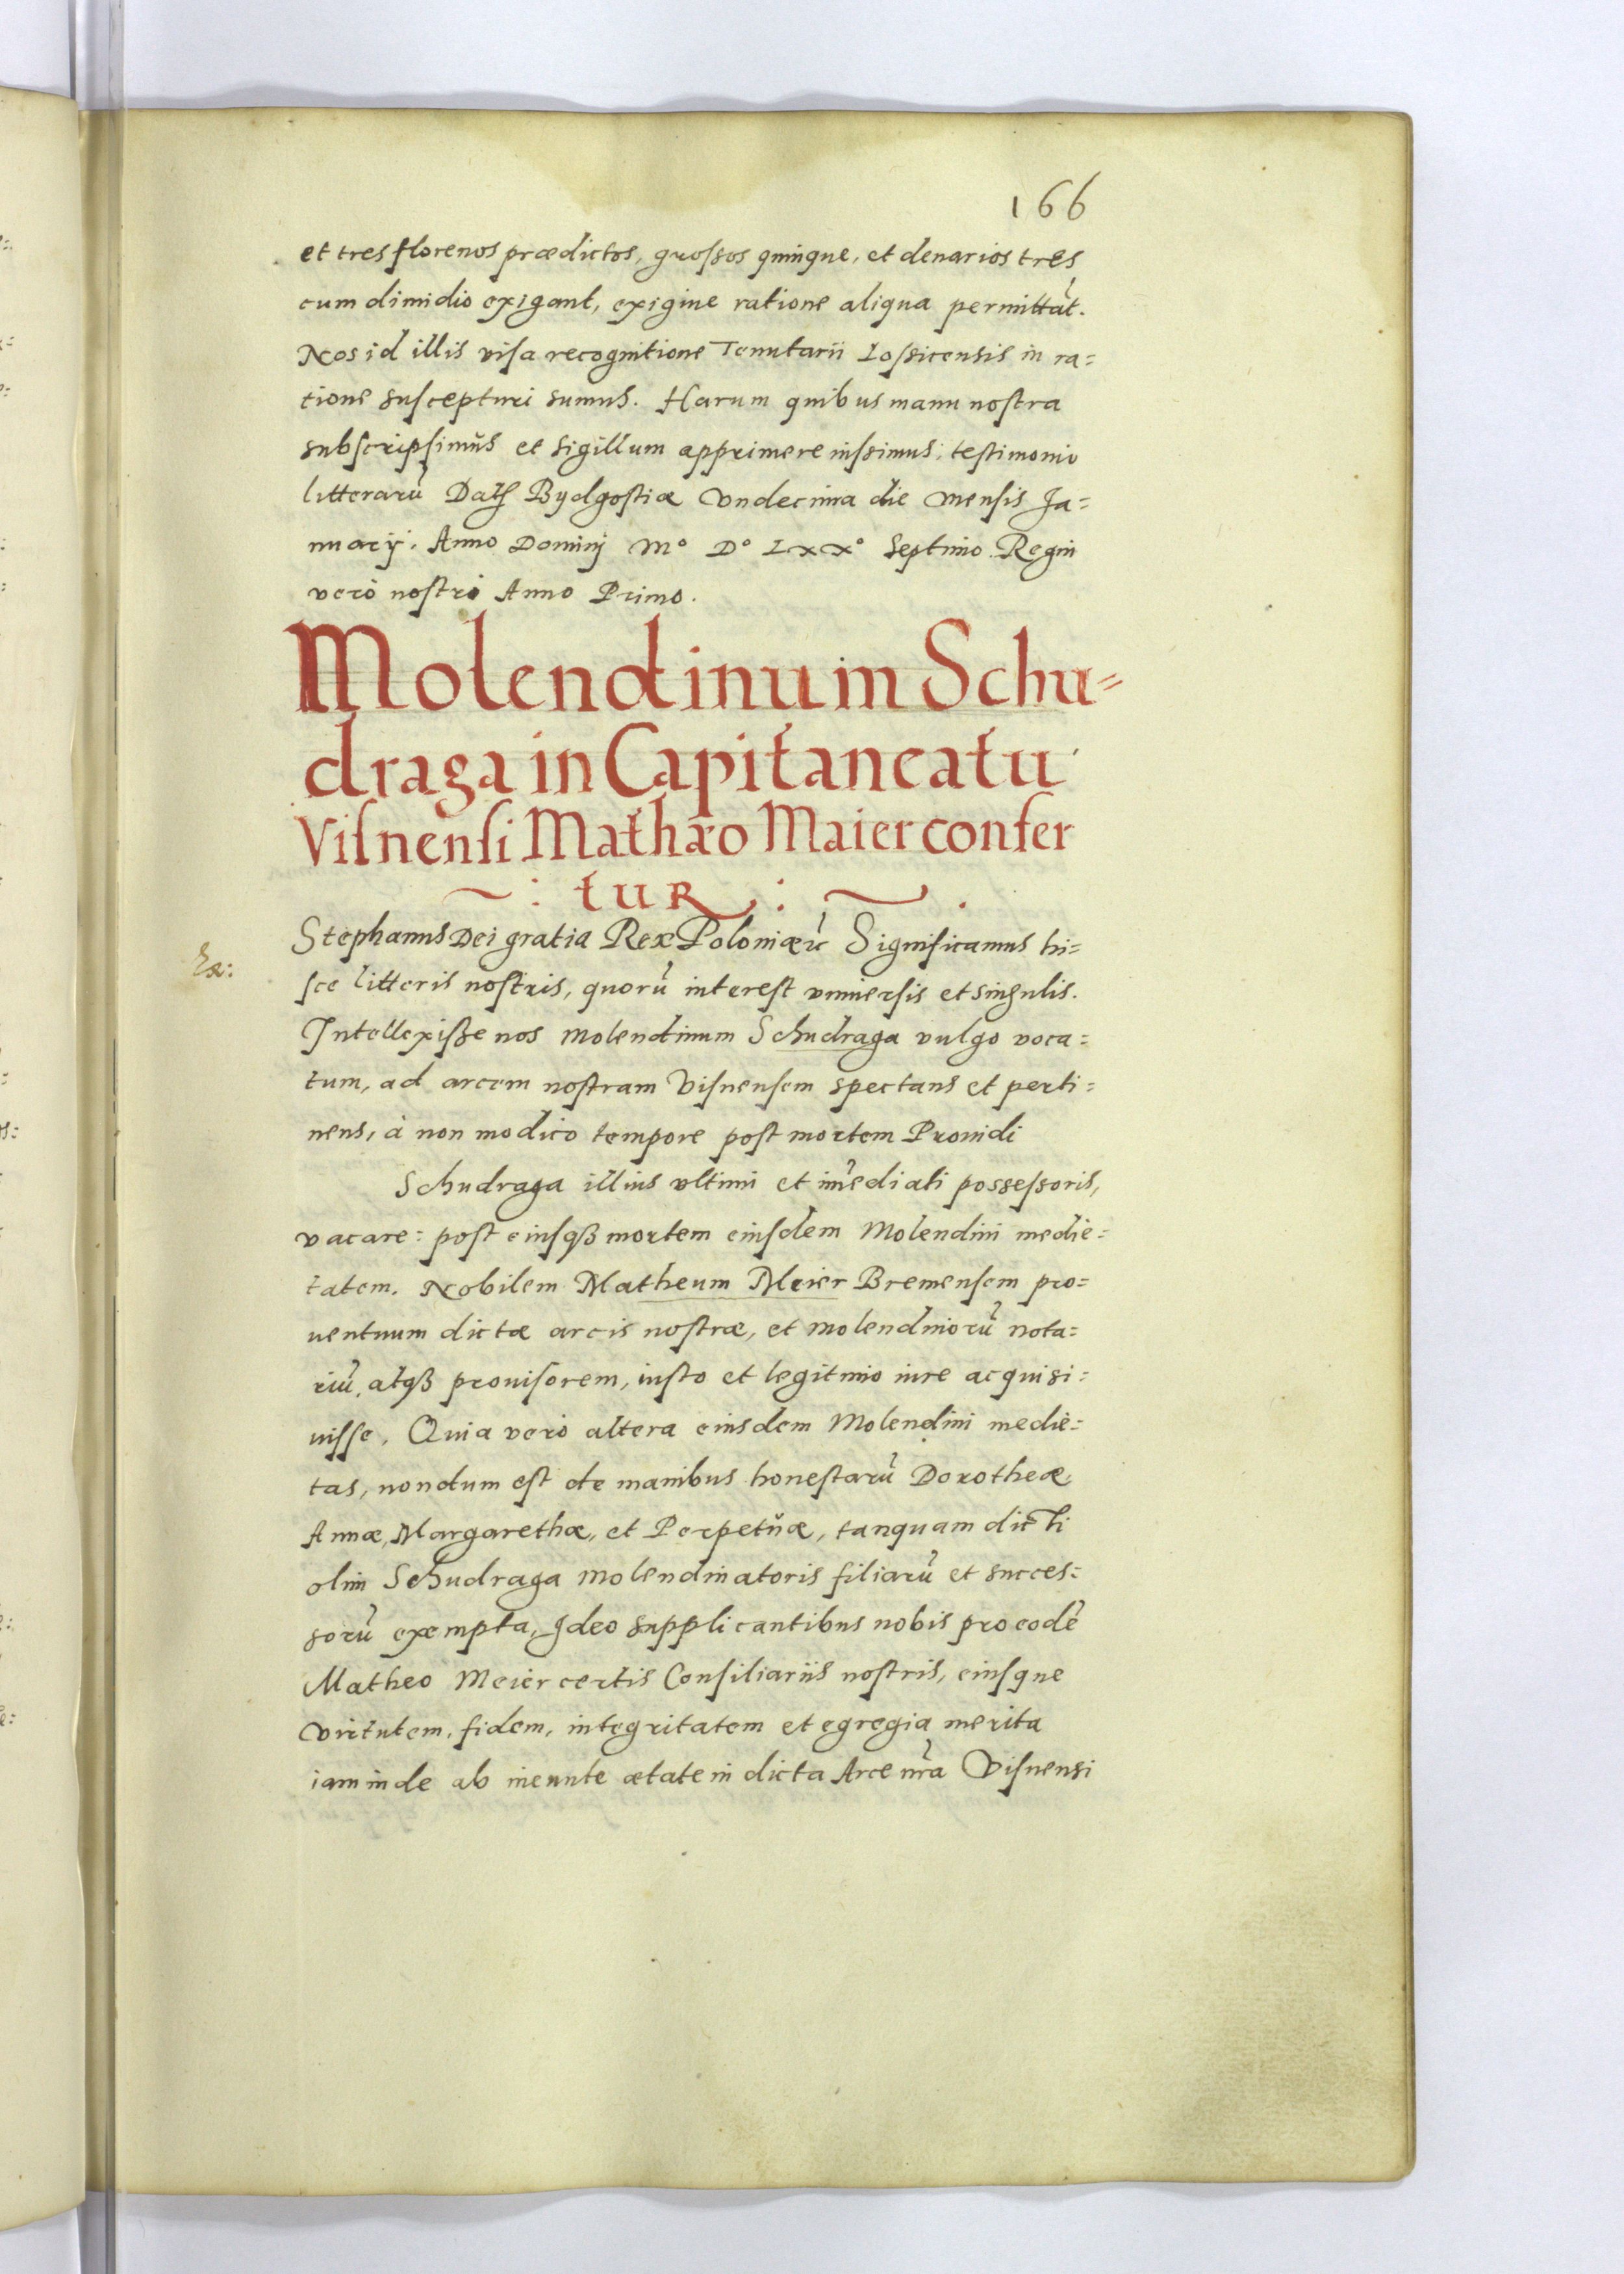 166
et tres florenos prædictos, grossos quinque, et denarios tres
cum dimidio exigant, exigiue ratione aliqua permittāt.
Nos id illis visa recognitione Tenutarii Lossicensis in ra=
tione suscepturi sumus. Harum quibus manu nostra
subscripsimus et sigillum apprimere iussimus, testimonio
litterarū Dat Bydgostiæ vndecima die mensis Ja=
nuarij. Anno Dominj Mº Dº LXXº septimo. Regni
verò nostri Anno Primo.
Molendinum Schu=
draga in Capitaneatu
Visnensi Mathæo Maier confer
~ : tur : ~ .
Stephanus Dei gratia Rex Poloniæ Significamus hi=
sce litteris nostris, quorū interest vniuersis et singulis.
Intellexisse nos molendinum Schudraga vulgo voca=
tum, ad arcem nostram Visnensem spectans et perti=
nens, à non modico tempore post mortem Prouidi
Schudraga illius vltimi et im̄ediati possessoris,
vacare: post eiusqß mortem eiusdem Molendini medie=
tatem. Nobilem Matheum Meier Bremensem pro=
uentuum dictæ arcis nostræ, et molendinorū nota=
riū, atqß prouisorem, iusto et legitimo iure acquisi=
uisse. Quia verò altera eiusdem Molendini medie=
tas, nondum est de manibus honestarū Dorotheæ,
Annæ, Margarethæ, et Perpetuæ, tanquam dicti
olim Schudraga molendinatoris filiarū et succes=
sorū exempta, Ideo supplicantibus nobis pro eodē
Matheo Meier certis Consiliariis nostris, eiusque
virtutem, fidem, integritatem et egregia merita
iam inde ab ineunte ætate in dicta Arce nr̄a Visnensi